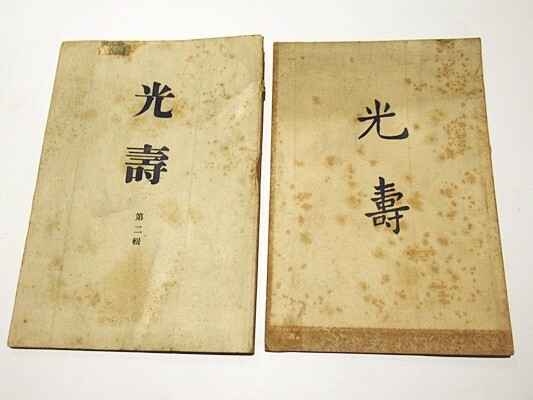 光壽
第二輯
光壽